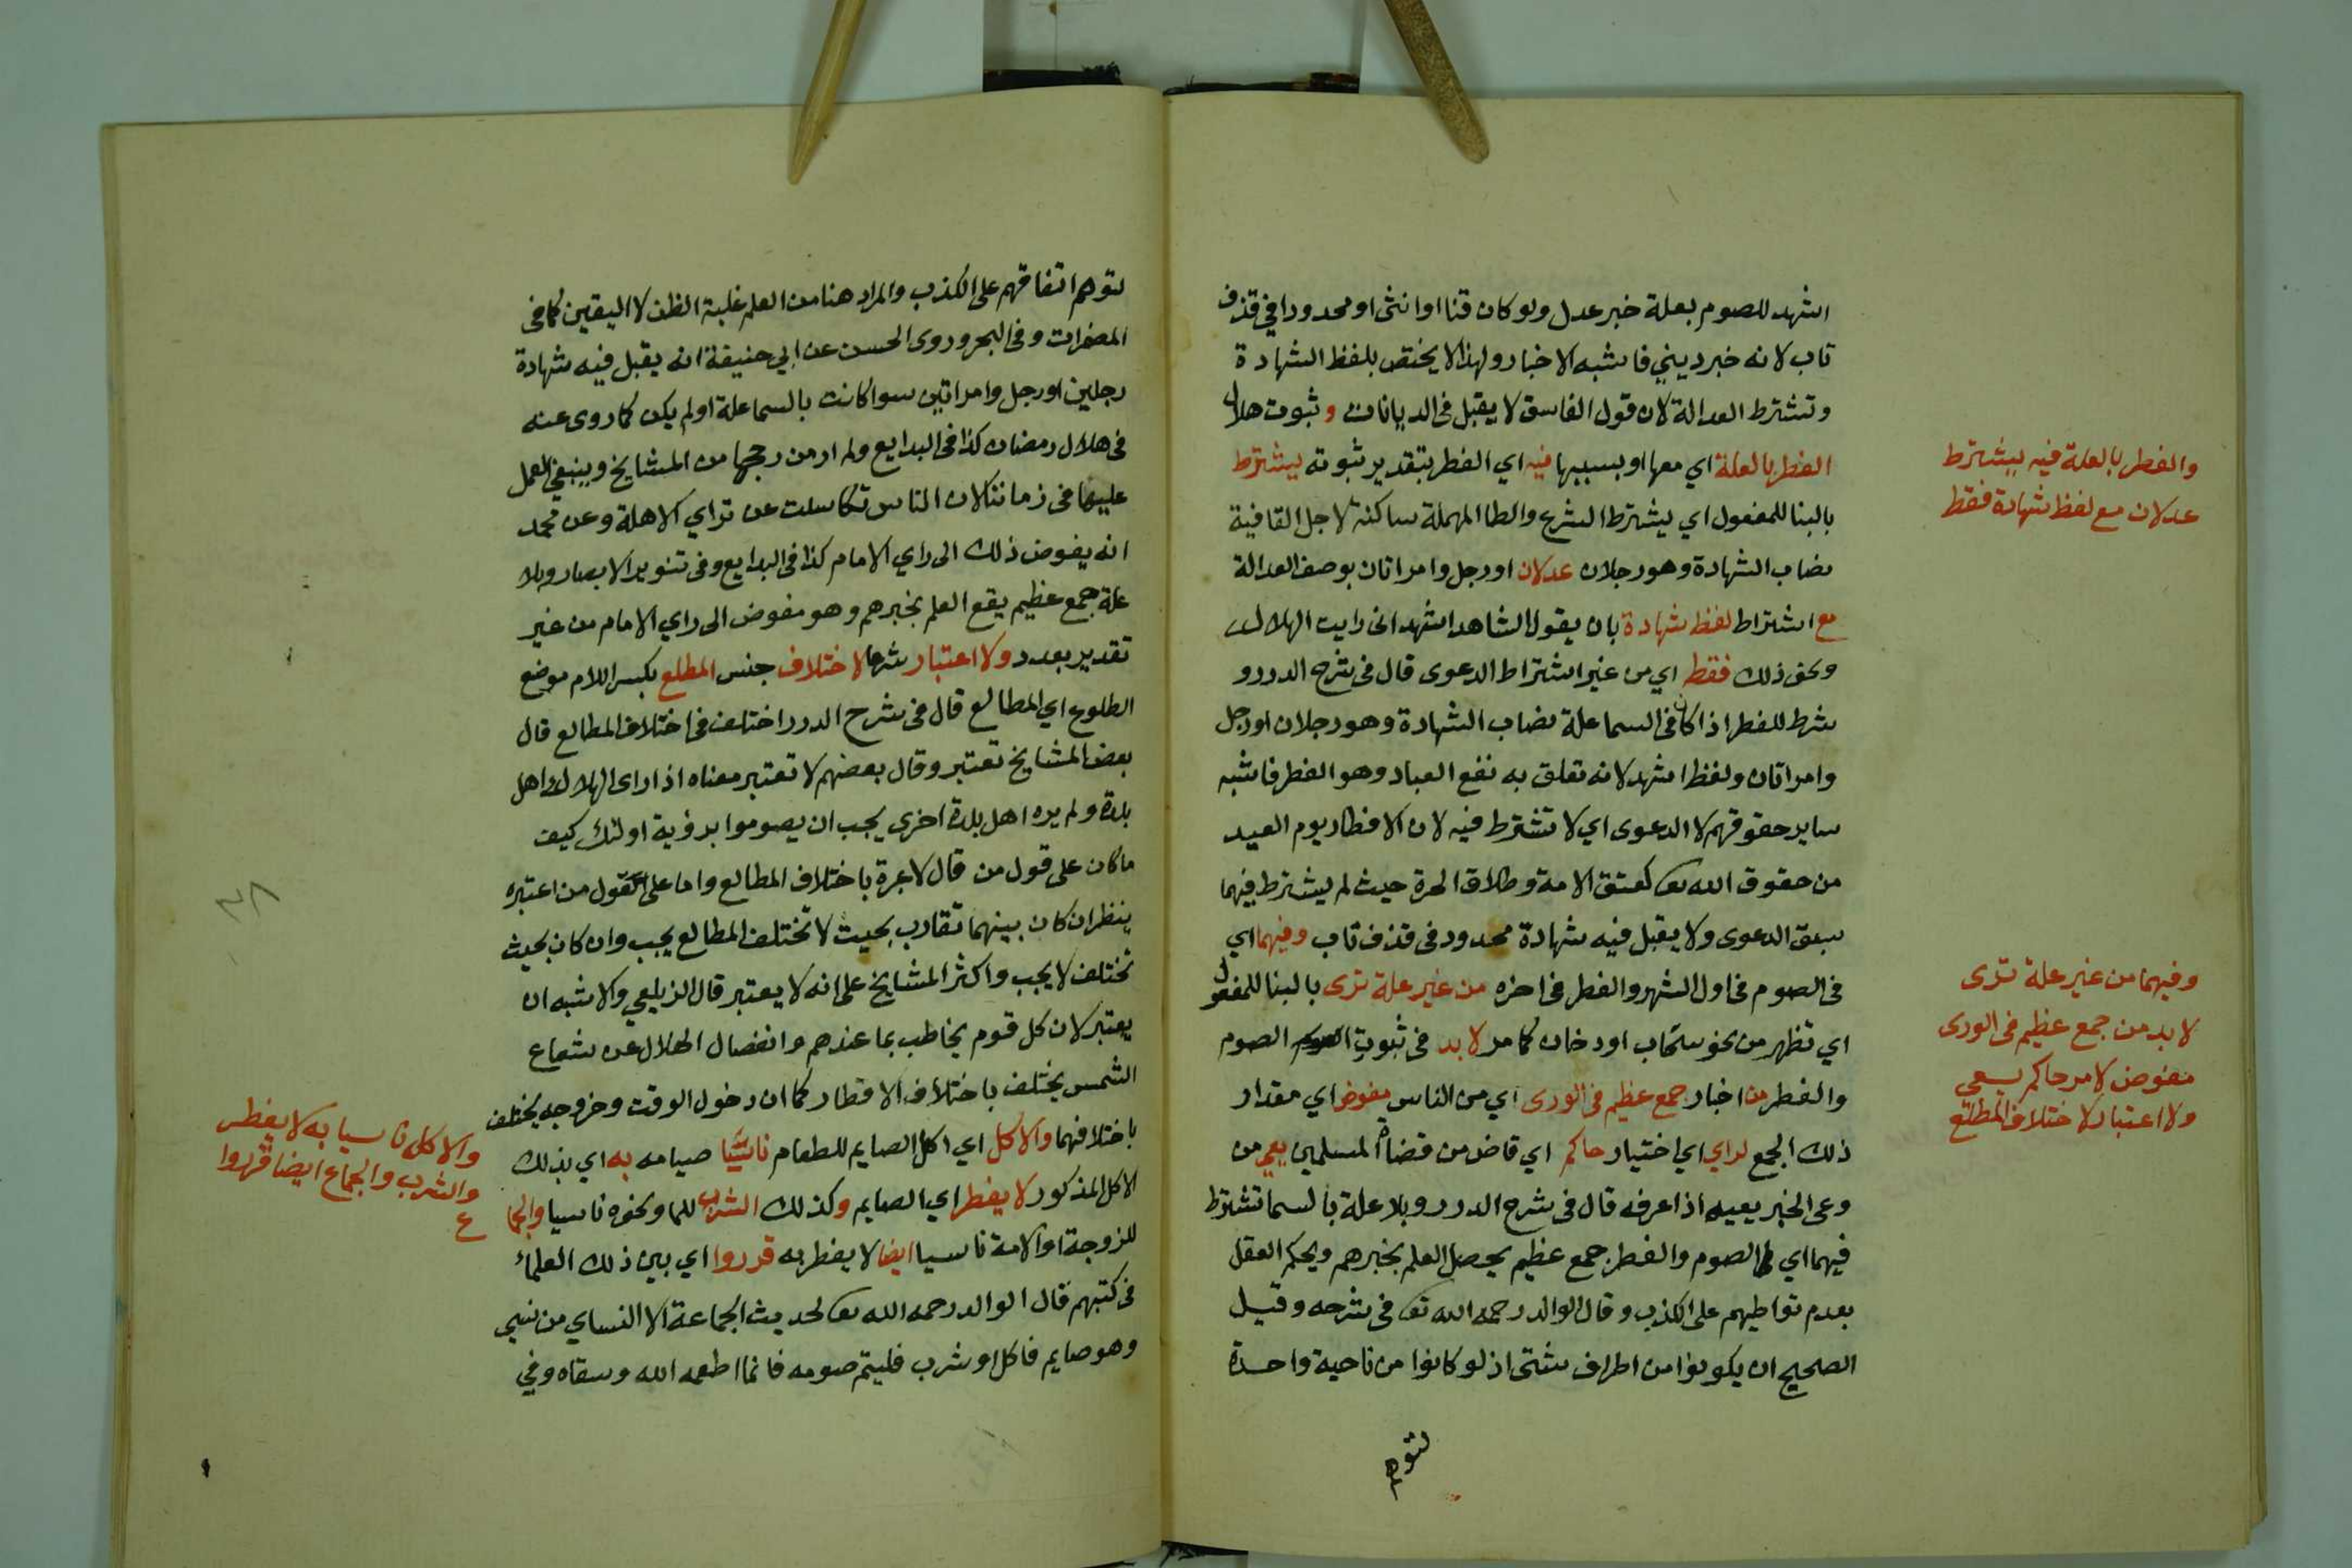 اشهد للصوم بعلة خبر عدل ولو كان قنا او انثى او محدودا في قذف
تاب لانه خبر ديني فاشبه الاخبار ولهذا لا يختص بلفظ الشهادة
وتشترط العدالة لان قول الفاسق لا يقبل في الديانات وثبوت هلال
الفطر بالعلة اي معها او بسببها فيه اي الفطر بتقدير ثبوته يشترط
بالبنا للمفعول اي يشترط الشرع والطا المهملة ساكنة لاجل القافية
نصاب الشهادة وهو رجلان عدلان او رجل وامراتان بوصف العدالة
مع اشتراط لفظ شهادة بان يقول الشاهد اشهد اني رايت الهلال
ونحو ذلك فقط اي من غير اشتراط الدعوى قال في شرح الدرر و
شرط للفطر اذا كان في السما علة نصاب الشهادة وهو رجلان او رجل
وامراتان ولفظ اشهد لانه تعلق به نفع العباد وهو الفطر فاشبه
ساير حقوقهم لا الدعوى اي لا تشترط فيه لان الافطار يوم العيد
من حقوق الله تع كعتق الامة وطلاق الحرة حيث لم يشترط فيهما
سبق الدعوى ولا يقبل فيه شهادة محدود في قذف تاب وفيهما اي
في الصوم في اول الشهر والفطر في اخره من غير علة ترى بالبنا للمفعول
اي تظهر من نحو سحاب او دخان كما مر لا بد في ثبوت الصوم
والفطر من اخبار جمع عظيم في الورى اي من الناس مفوض اي مقدار
ذلك الجمع لراي اي اختيار حاكم اي قاض من قضاة المسلمين يعي من
وعى الخبر يعيه اذا عرفه قال في شرح الدرر وبلا علة بالسما تشترط
فيهما اي الصوم والفطر جمع عظيم يحصل العلم بخبرهم ويحكم العقل
بعدم تواطيهم على الكذب وقال الوالد رحمه الله تع في شرحه وقيل
الصحيح ان يكونوا من اطراف شتى اذ لو كانوا من ناحية واحدة
لتوهم
والفطر بالعلة فيه يشترط
عدلان مع لفظ شهادة فقط
وفيهما من غير علة ترى
لا بد من جمع عظيم في الورى
مفوض لامر حاكم يعي
ولا اعتبار لاختلاف المطلع
لتوهم اتفاقهم على الكذب والمراد هنا من العلم غلبة الظن لا اليقين كما في
المضمرات وفي البحر وروى الحسن عن ابي حنيفة انه يقبل فيه شهادة
رجلين او رجل وامراتين سوا كانت بالسما علة او لم يكن كما روى عنه
في هلال رمضان كذا في البدايع ولم ار من رجحها من المشايخ وينبغي العمل
عليها في زماننا لان الناس تكاسلت عن تراي الاهلة وعن محمد
انه يفوض ذلك الى راي الامام كذا في البدايع وفي تنوير الابصار وبلا
علة جمع عظيم يقع العلم بخبرهم وهو مفوض الى راي الامام من غير
تقدير بعدد ولا اعتبار شرعا لاختلاف جنس المطلع بكسر اللام موضع
الطلوع اي المطالع قال في شرح الدرر اختلف في اختلاف المطالع قال
بعض المشايخ تعتبر وقال بعضهم لا تعتبر معناه اذا راى الهلال اهل
بلدة ولم يره اهل بلدة اخرى يجب ان يصوموا برؤية اولئك كيف
ما كان على قول من قال لا عبرة باختلاف المطالع واما على قول من اعتبره
ينظر ان كان بينهما تقارب بحيث لا تختلف المطالع يجب وان كان بحيث
تختلف لا يجب واكثر المشايخ على انه لا يعتبر قال الزيلعي والاشبه ان
يعتبر لان كل قوم يخاطب بما عندهم وانفصال الهلال عن شعاع
الشمس يختلف باختلاف الاقطار كما ان دخول الوقت وخروجه يختلف
باختلافهما والاكل اي اكل الصايم للطعام ناسيا صيامه به اي بذلك
الاكل المذكور لا يفطر اي الصايم وكذلك الشرب للما ونحوه ناسيا والجما
للزوجة او الامة ناسيا ايضا لا يفطر به قرروا اي بين ذلك العلماء
في كتبهم قال الوالد رحمه الله تع لحديث الجماعة الا النساي من نسي
وهو صايم فاكل او شرب فليتم صومه فانما اطعمه الله وسقاه وفي
والاكل ناسيا به لا يفطر
والشرب والجماع ايضا قرروا
ع
٣٨